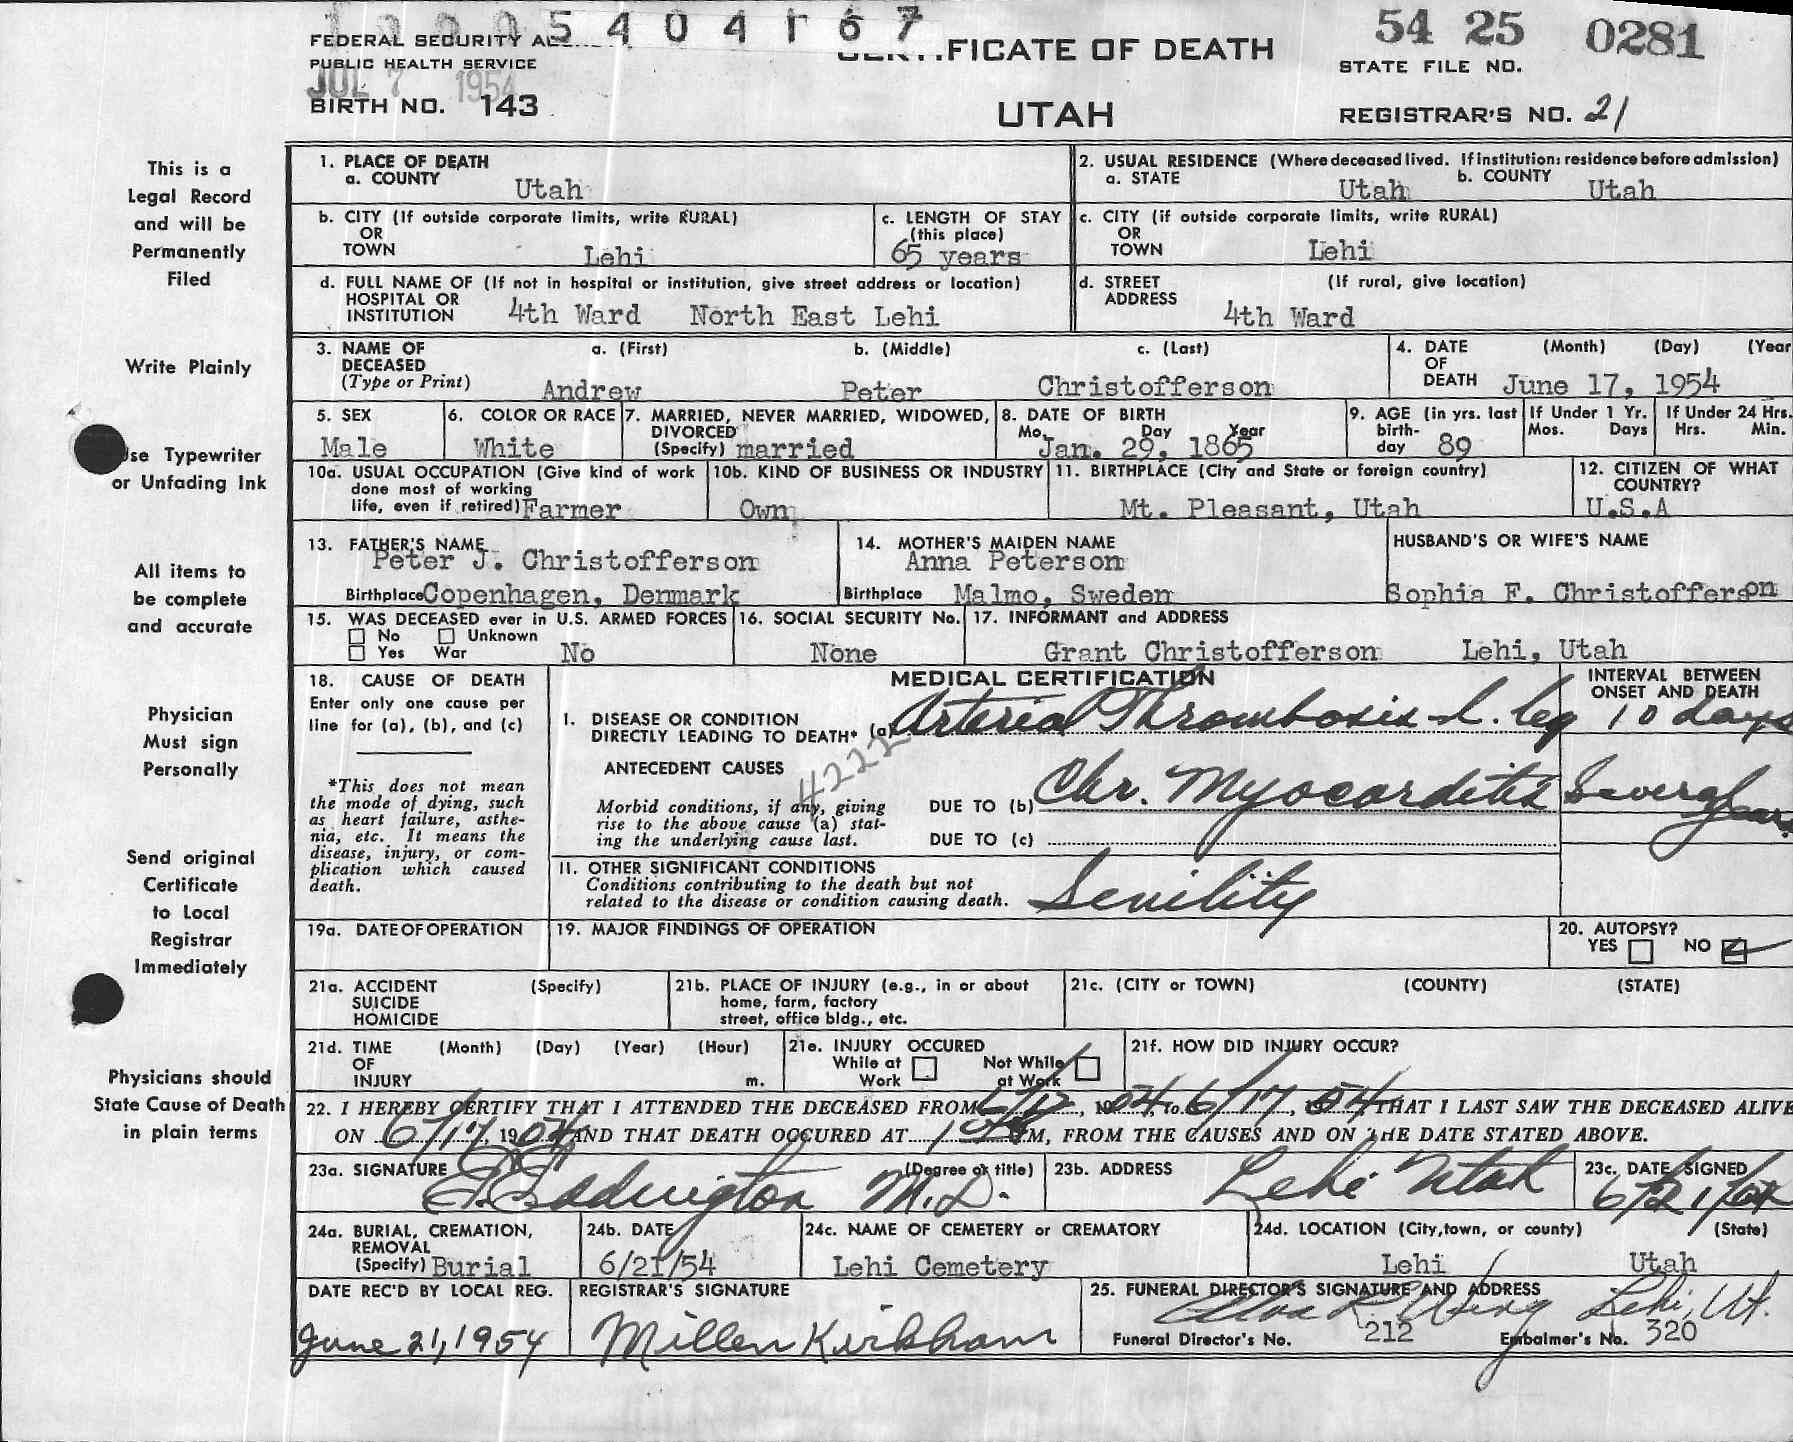 5 4 0 4 1 6 7
54 25 0281
FEDERAL SECURITY
FICATE OF DEATH
STATE FILE NO.
PUBLIC HEALTH SERVICE
JUL 7 1954
BIRTH NO. 143
UTAH
REGISTRAR'S NO. 21
This is a
Legal Record
and will be
Permanently
Filed
Write Plainly
se Typewriter
or Unfading Ink
All items to
be complete
and accurate
Physician
Must sign
Personally
Send original
Certificate
to Local
Registrar
Immediately
Physicians should
State Cause of Death
in plain terms
1. PLACE OF DEATH
a. COUNTY Utah
2. USUAL RESIDENCE (Where deceased lived. If institution: residence before admission)
a. STATE Utah b. COUNTY Utah
b. CITY (If outside corporate limits, write RURAL)
OR
TOWN Lehi
c. LENGTH OF STAY
(this place)
65 years
c. CITY (if outside corporate limits, write RURAL)
OR
TOWN Lehi
d. FULL NAME OF (If not in hospital or institution, give street address or location)
HOSPITAL OR
INSTITUTION 4th Ward North East Lehi
d. STREET (If rural, give location)
ADDRESS
4th Ward
3. NAME OF a. (First) b. (Middle) c. (Last)
DECEASED
(Type or Print) Andrew Peter Christofferson
4. DATE (Month) (Day) (Year
OF
DEATH June 17, 1954
5. SEX
Male
6. COLOR OR RACE
White
7. MARRIED, NEVER MARRIED, WIDOWED,
DIVORCED
(Specify) married
8. DATE OF BIRTH
Mo. Day Year
Jan. 29, 1865
9. AGE (in yrs. last
birth-
day 89
If Under 1 Yr.
Mos. Days
If Under 24 Hrs.
Hrs. Min.
10a. USUAL OCCUPATION (Give kind of work
done most of working
life, even if retired) Farmer
10b. KIND OF BUSINESS OR INDUSTRY
Own
11. BIRTHPLACE (City and State or foreign country)
Mt. Pleasant, Utah
12. CITIZEN OF WHAT
COUNTRY?
U.S.A
13. FATHER'S NAME
Peter J. Christofferson
Birthplace Copenhagen, Denmark
14. MOTHER'S MAIDEN NAME
Anna Peterson
Birthplace Malmo, Sweden
HUSBAND'S OR WIFE'S NAME
Sophia F. Christofferson
15. WAS DECEASED ever in U.S. ARMED FORCES
No Unknown
Yes War No
16. SOCIAL SECURITY No.
None
17. INFORMANT and ADDRESS
Grant Christofferson Lehi, Utah
18. CAUSE OF DEATH
Enter only one cause per
line for (a), (b), and (c)
*This does not mean
the mode of dying, such
as heart failure, asthe-
nia, etc. It means the
disease, injury, or com-
plication which caused
death.
MEDICAL CERTIFICATION
INTERVAL BETWEEN
ONSET AND DEATH
I. DISEASE OR CONDITION
DIRECTLY LEADING TO DEATH* (a) Arterial Thrombosis L. leg 10 days
4222
ANTECEDENT CAUSES
Morbid conditions, if any, giving
rise to the above cause (a) stat-
ing the underlying cause last.
DUE TO (b) Chr. Myocarditis Several years
DUE TO (c)
II. OTHER SIGNIFICANT CONDITIONS
Conditions contributing to the death but not
related to the disease or condition causing death.
Senility
19a. DATE OF OPERATION
19. MAJOR FINDINGS OF OPERATION
20. AUTOPSY?
YES NO
21a. ACCIDENT (Specify)
SUICIDE
HOMICIDE
21b. PLACE OF INJURY (e.g., in or about
home, farm, factory
street, office bldg., etc.
21c. (CITY or TOWN) (COUNTY) (STATE)
21d. TIME (Month) (Day) (Year) (Hour)
OF
INJURY m.
21e. INJURY OCCURED
While at Not While
Work at Work
21f. HOW DID INJURY OCCUR?
22. I HEREBY CERTIFY THAT I ATTENDED THE DECEASED FROM 1954, to 6/17, 54 THAT I LAST SAW THE DECEASED ALIVE
ON 6/17, 1954 AND THAT DEATH OCCURED AT M, FROM THE CAUSES AND ON THE DATE STATED ABOVE.
23a. SIGNATURE (Degree or title)
Eddington M.D.
23b. ADDRESS
Lehi Utah
23c. DATE SIGNED
6/21/54
24a. BURIAL, CREMATION,
REMOVAL
(Specify) Burial
24b. DATE
6/21/54
24c. NAME OF CEMETERY or CREMATORY
Lehi Cemetery
24d. LOCATION (City, town, or county) (State)
Lehi Utah
DATE REC'D BY LOCAL REG.
June 21, 1954
REGISTRAR'S SIGNATURE
Millen Kirkham
25. FUNERAL DIRECTOR'S SIGNATURE AND ADDRESS
Wing Lehi, Ut.
Funeral Director's No. 212 Embalmer's No. 320